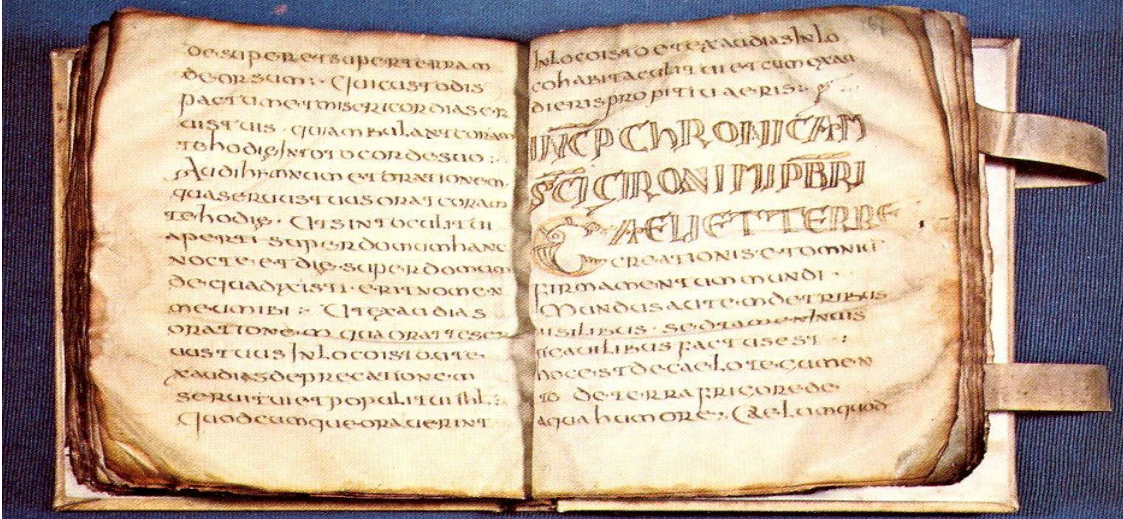 desuper et super terram
deorsum : Qui custodis
pactum et misericordias er
uis tuis · qui ambulant coram
te hodie in toto corde suo :
Audi hemnum et orationem
quas eruus tuus orat coram
te hodie · Ut sint oculi tui
aperti super domum hanc
nocte et die super domum
de qua dixisti erit nomen
meum ibi : Ut exaudias
orationem qua orat te ser
uus tuus in loco isto ut e
xaudias deprecationem
serui tui et populi tui ihl
Quodcumque orauerint
in loco isto et exaudias in lo
co habitaculi tui et cum exau
dieris propitiaeris
INCP CHRONICAM
SCI CIRONIMI PBRI
CAELI ET TERRE
creationis et omnium
firmamentum mundi ·
Mundus autem de tribus
uisilibus · sed tamen
factus est :
hoc est de caelo tegumen
to de terra frigore de
aqua humore : Caelum quod